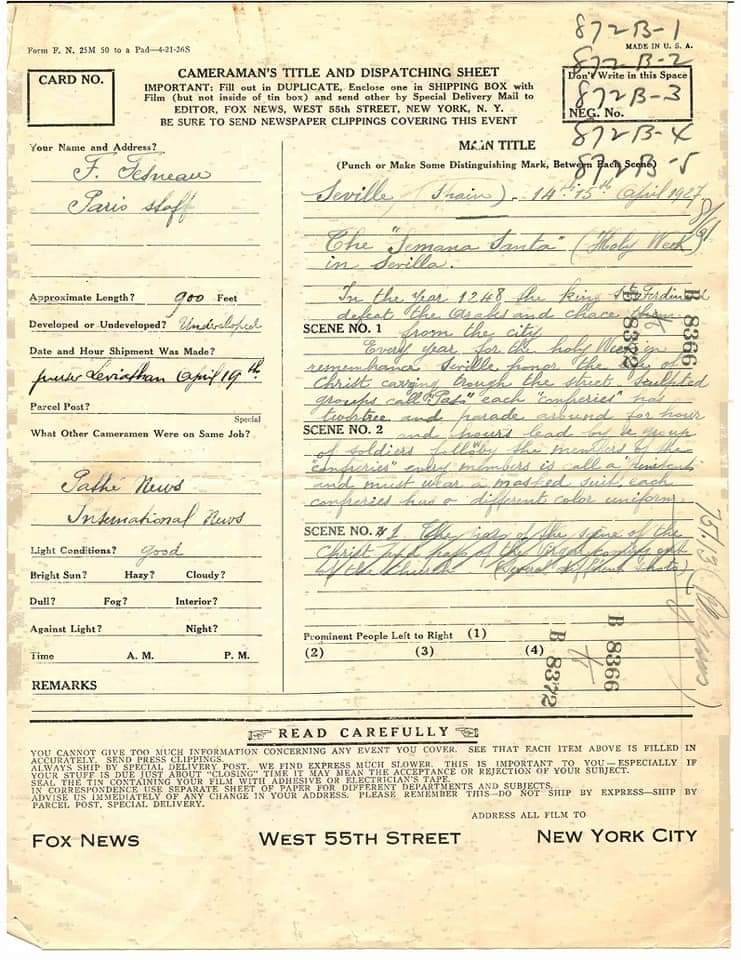 872B-1
Form F. N. 25M 50 to a Pad—4-21-26S
MADE IN U. S. A.
872B-2
CARD NO.
CAMERAMAN'S TITLE AND DISPATCHING SHEET
IMPORTANT: Fill out in DUPLICATE, Enclose one in SHIPPING BOX with
Film (but not inside of tin box) and send other by Special Delivery Mail to
EDITOR, FOX NEWS, WEST 55th STREET, NEW YORK, N. Y.
BE SURE TO SEND NEWSPAPER CLIPPINGS COVERING THIS EVENT
Don't Write in this Space
872B-3
NEG. No.
872B-4
872B-5
Your Name and Address?
Paris staff
Approximate Length? 900 Feet
Developed or Undeveloped? Undeveloped
Date and Hour Shipment Was Made?
Leviathan April 19th
Parcel Post?
Special
What Other Cameramen Were on Same Job?
Pathé News
International News
Light Conditions? good
Bright Sun? Hazy? Cloudy?
Dull? Fog? Interior?
Against Light? Night?
Time A. M. P. M.
REMARKS
MAIN TITLE
(Punch or Make Some Distinguishing Mark, Between Each Scene)
Seville (Spain). 14th 15th April 1927
The "Semana Santa" (Holy Week)
in Sevilla.
In the year 1248 the king St Ferdinand
defeat the Arabs and chace them
SCENE NO. 1 from the city
Every year for the holy Week in
remembrance Seville honor the life of
Christ carring trough the street sculpted
groups call "Paso" each "confreries" has
two or tree and parade around for hour
SCENE NO. 2 and hours lead by a group
of soldiers follow by the members of the
"confreries" every members is call a "Penitent"
and must wear a masked suit each
confreries has a different color uniform.
SCENE NO. 3 1 The paso of the scene of the
Christ and paso of the Virgin coming out
of the Church (Several different shots)
B 8366
B 8372
Prominent People Left to Right (1)
(2) (3) (4)
B 8366
B 8372
READ CAREFULLY
YOU CANNOT GIVE TOO MUCH INFORMATION CONCERNING ANY EVENT YOU COVER. SEE THAT EACH ITEM ABOVE IS FILLED IN
ACCURATELY. SEND PRESS CLIPPINGS.
ALWAYS SHIP BY SPECIAL DELIVERY POST. WE FIND EXPRESS MUCH SLOWER. THIS IS IMPORTANT TO YOU—ESPECIALLY IF
YOUR STUFF IS DUE JUST ABOUT "CLOSING" TIME IT MAY MEAN THE ACCEPTANCE OR REJECTION OF YOUR SUBJECT.
SEAL THE TIN CONTAINING YOUR FILM WITH ADHESIVE OR ELECTRICIAN'S TAPE.
IN CORRESPONDENCE USE SEPARATE SHEET OF PAPER FOR DIFFERENT DEPARTMENTS AND SUBJECTS.
ADVISE US IMMEDIATELY OF ANY CHANGE IN YOUR ADDRESS. PLEASE REMEMBER THIS—DO NOT SHIP BY EXPRESS—SHIP BY
PARCEL POST, SPECIAL DELIVERY.
ADDRESS ALL FILM TO
FOX NEWS WEST 55TH STREET NEW YORK CITY